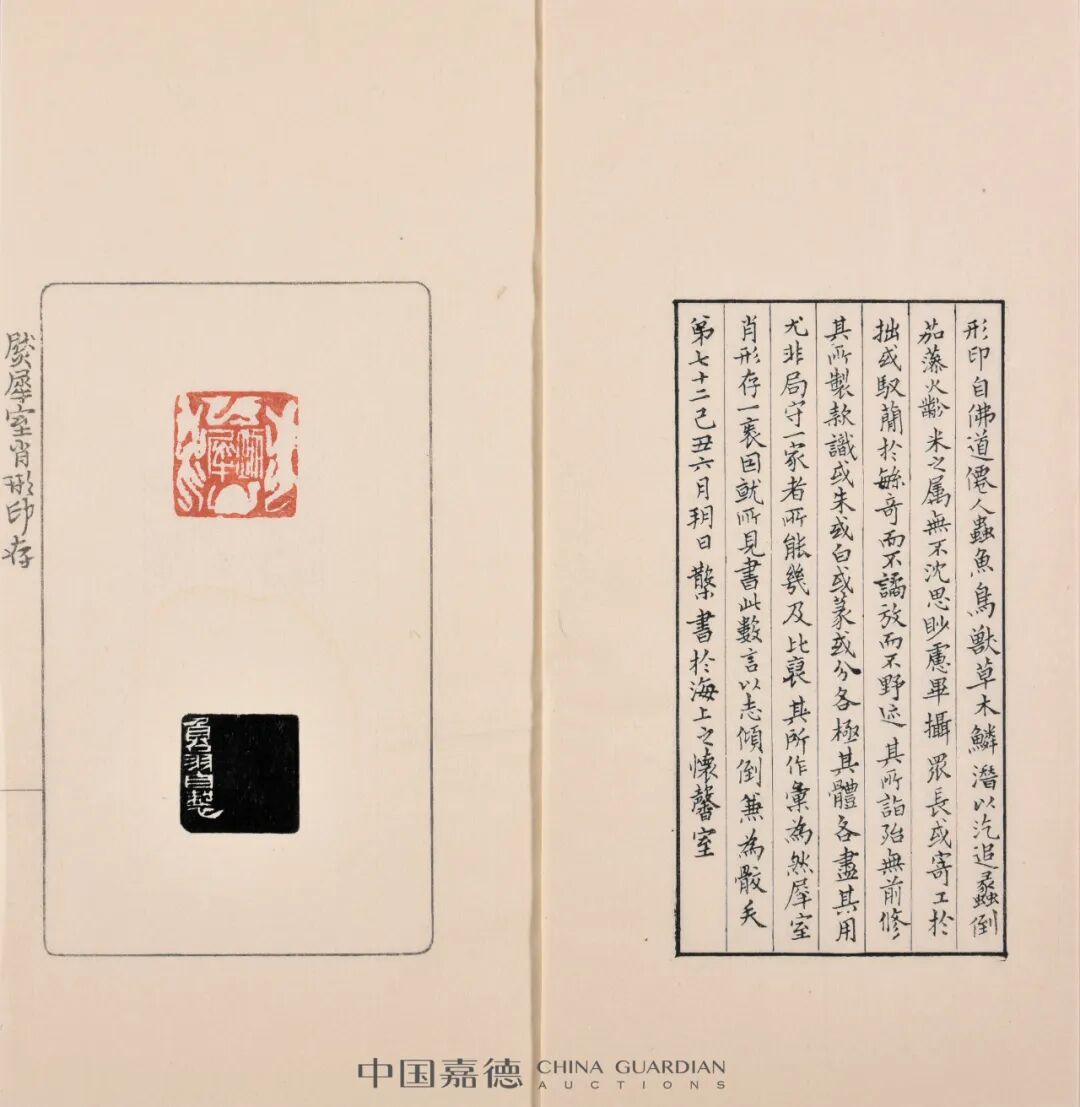 形印自佛道僊人蟲魚鳥獸草木鱗潛以汔追蠡倒
茄藻火黺米之属無不沈思眇慮畢攝眾長或寄工於
拙或馭簡於緐奇而不譎放而不野迹其所詣殆無前修
其所製款識或朱或白或篆或分各極其體各盡其用
尤非局守一家者所能幾及比裒其所作彙為然犀室
肖形存一袠因就所見書此數言以志傾倒兼為骹矢
第七十二己丑六月玥日 書於海上之懷馨室
犀室肖形印存
犀
負翁自製
中国嘉德
CHINA GUARDIAN
AUCTIONS